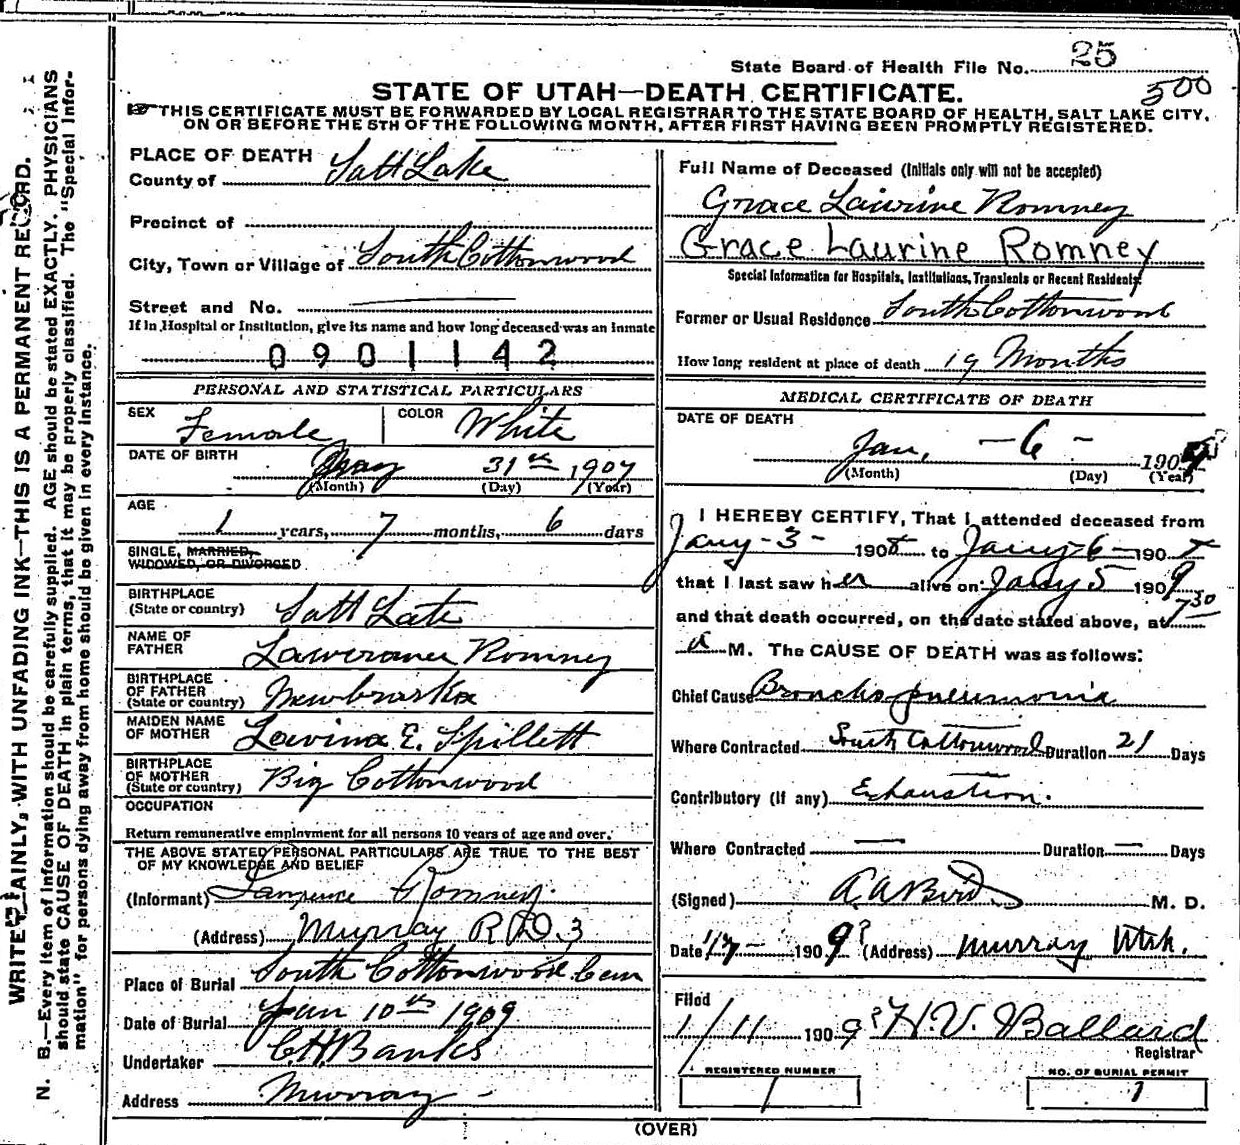 State Board of Health File No. 25
500
STATE OF UTAH—DEATH CERTIFICATE.
THIS CERTIFICATE MUST BE FORWARDED BY LOCAL REGISTRAR TO THE STATE BOARD OF HEALTH, SALT LAKE CITY,
ON OR BEFORE THE 5TH OF THE FOLLOWING MONTH, AFTER FIRST HAVING BEEN PROMPTLY REGISTERED.
WRITE PLAINLY, WITH UNFADING INK—THIS IS A PERMANENT RECORD.
N. B.—Every item of information should be carefully supplied. AGE should be stated EXACTLY. PHYSICIANS
should state CAUSE OF DEATH in plain terms, that it may be properly classified. The "Special Infor-
mation" for persons dying away from home should be given in every instance.
PLACE OF DEATH
County of Salt Lake
Precinct of
City, Town or Village of South Cottonwood
Street and No.
If in Hospital or Institution, give its name and how long deceased was an inmate
0901142
PERSONAL AND STATISTICAL PARTICULARS
SEX Female COLOR White
DATE OF BIRTH May 31st 1907
(Month) (Day) (Year)
AGE
1 years, 7 months, 6 days
SINGLE, MARRIED,
WIDOWED, OR DIVORCED
BIRTHPLACE
(State or country) Salt Lake
NAME OF
FATHER Lawerance Romney
BIRTHPLACE
OF FATHER
(State or country) Newbraska
MAIDEN NAME
OF MOTHER Lavina E. Spillett
BIRTHPLACE
OF MOTHER
(State or country) Big Cottonwood
OCCUPATION
Return remunerative employment for all persons 10 years of age and over.
THE ABOVE STATED PERSONAL PARTICULARS ARE TRUE TO THE BEST
OF MY KNOWLEDGE AND BELIEF
(Informant) Lawrence Romney
(Address) Murray R.D. 3
Place of Burial South Cottonwood Cem
Date of Burial Jan 10th 1909
Undertaker C.H. Banks
Address Murray
Full Name of Deceased (Initials only will not be accepted)
Grace Laurine Romney
Grace Laurine Romney
Special Information for Hospitals, Institutions, Transients or Recent Residents.
Former or Usual Residence South Cottonwood
How long resident at place of death 19 Months
MEDICAL CERTIFICATE OF DEATH
DATE OF DEATH
Jan. —6— 1909
(Month) (Day) (Year)
I HEREBY CERTIFY, That I attended deceased from
Jany-3- 190 to Jany-6- 190
that I last saw her alive on Jany 5 1909
and that death occurred, on the date stated above, at 7 30
a M. The CAUSE OF DEATH was as follows:
Chief Cause Broncho pneumonia
Where Contracted South Cottonwood Duration 21 Days
Contributory (if any) Exhaustion.
Where Contracted — Duration — Days
(Signed) A. A. Bird M. D.
Date 1/7- 1909? (Address) Murray Utah.
Filed
1/11 1909? H.V. Ballard
Registrar
REGISTERED NUMBER
1
NO. OF BURIAL PERMIT
1
(OVER)